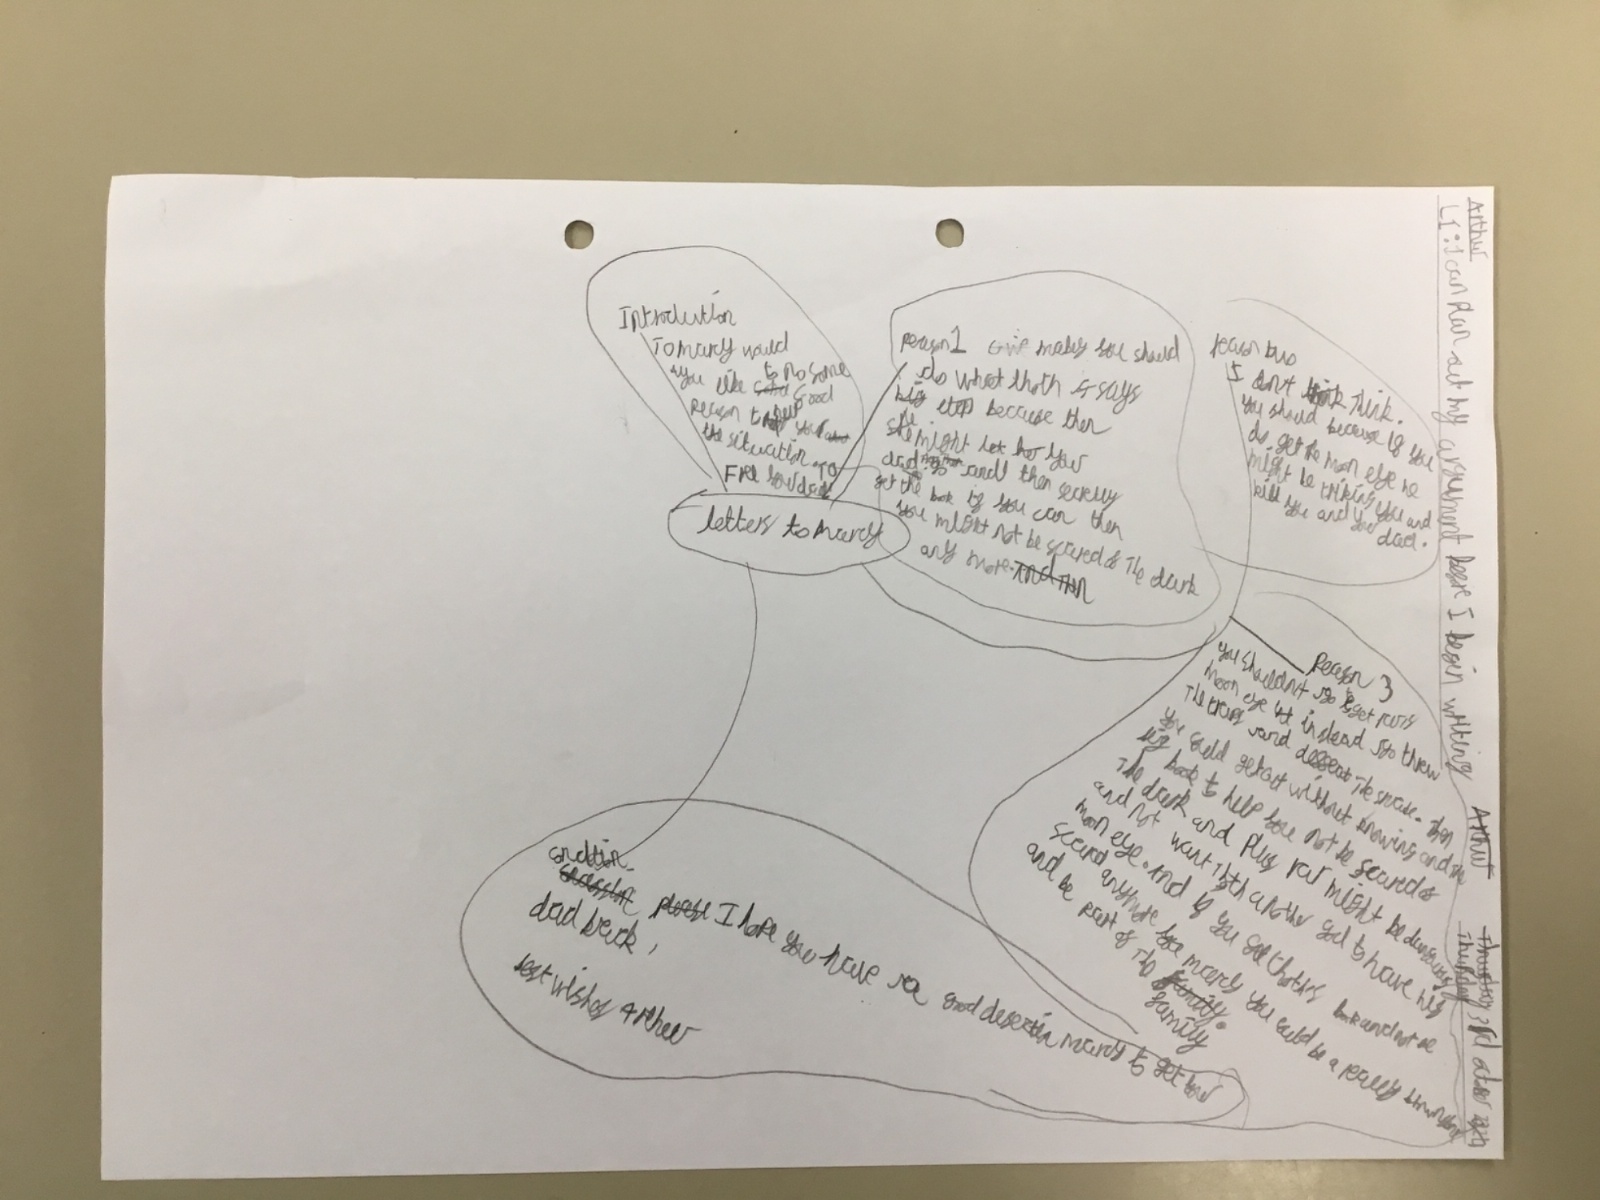 Arthur
LI: I can plan out my argument before I begin writing
Introduction
To marcy would
you like to no some
good
reason to help you
the situation To
Find your dad
letters to marcy
reason 1 marcy you should
do what thoth says
because then
he might let your
dad go and then secretly
get the book if you can then
you might not be scared of The dark
any more. And then
reason two
I dont think Think.
you should because if you
do get the moon eye he
might be triking you and
kill you and your
dad.
Reason 3
you shouldnt go to get
moon eye but instead go threw
The traps and defeat The snake. Then
you could get out without knowing and
book to help you not be scared of
The dark and Plus might be dangerous
and not want thoth another god to have his
moon eye. And if you get thoths book and not be
scared anymore you marcy you could be a really
and be part of The family.
family
I hope you have a good marcy to get your
dad back,
best wishes Arthur
Arthur
Thursday 3rd
Thursday